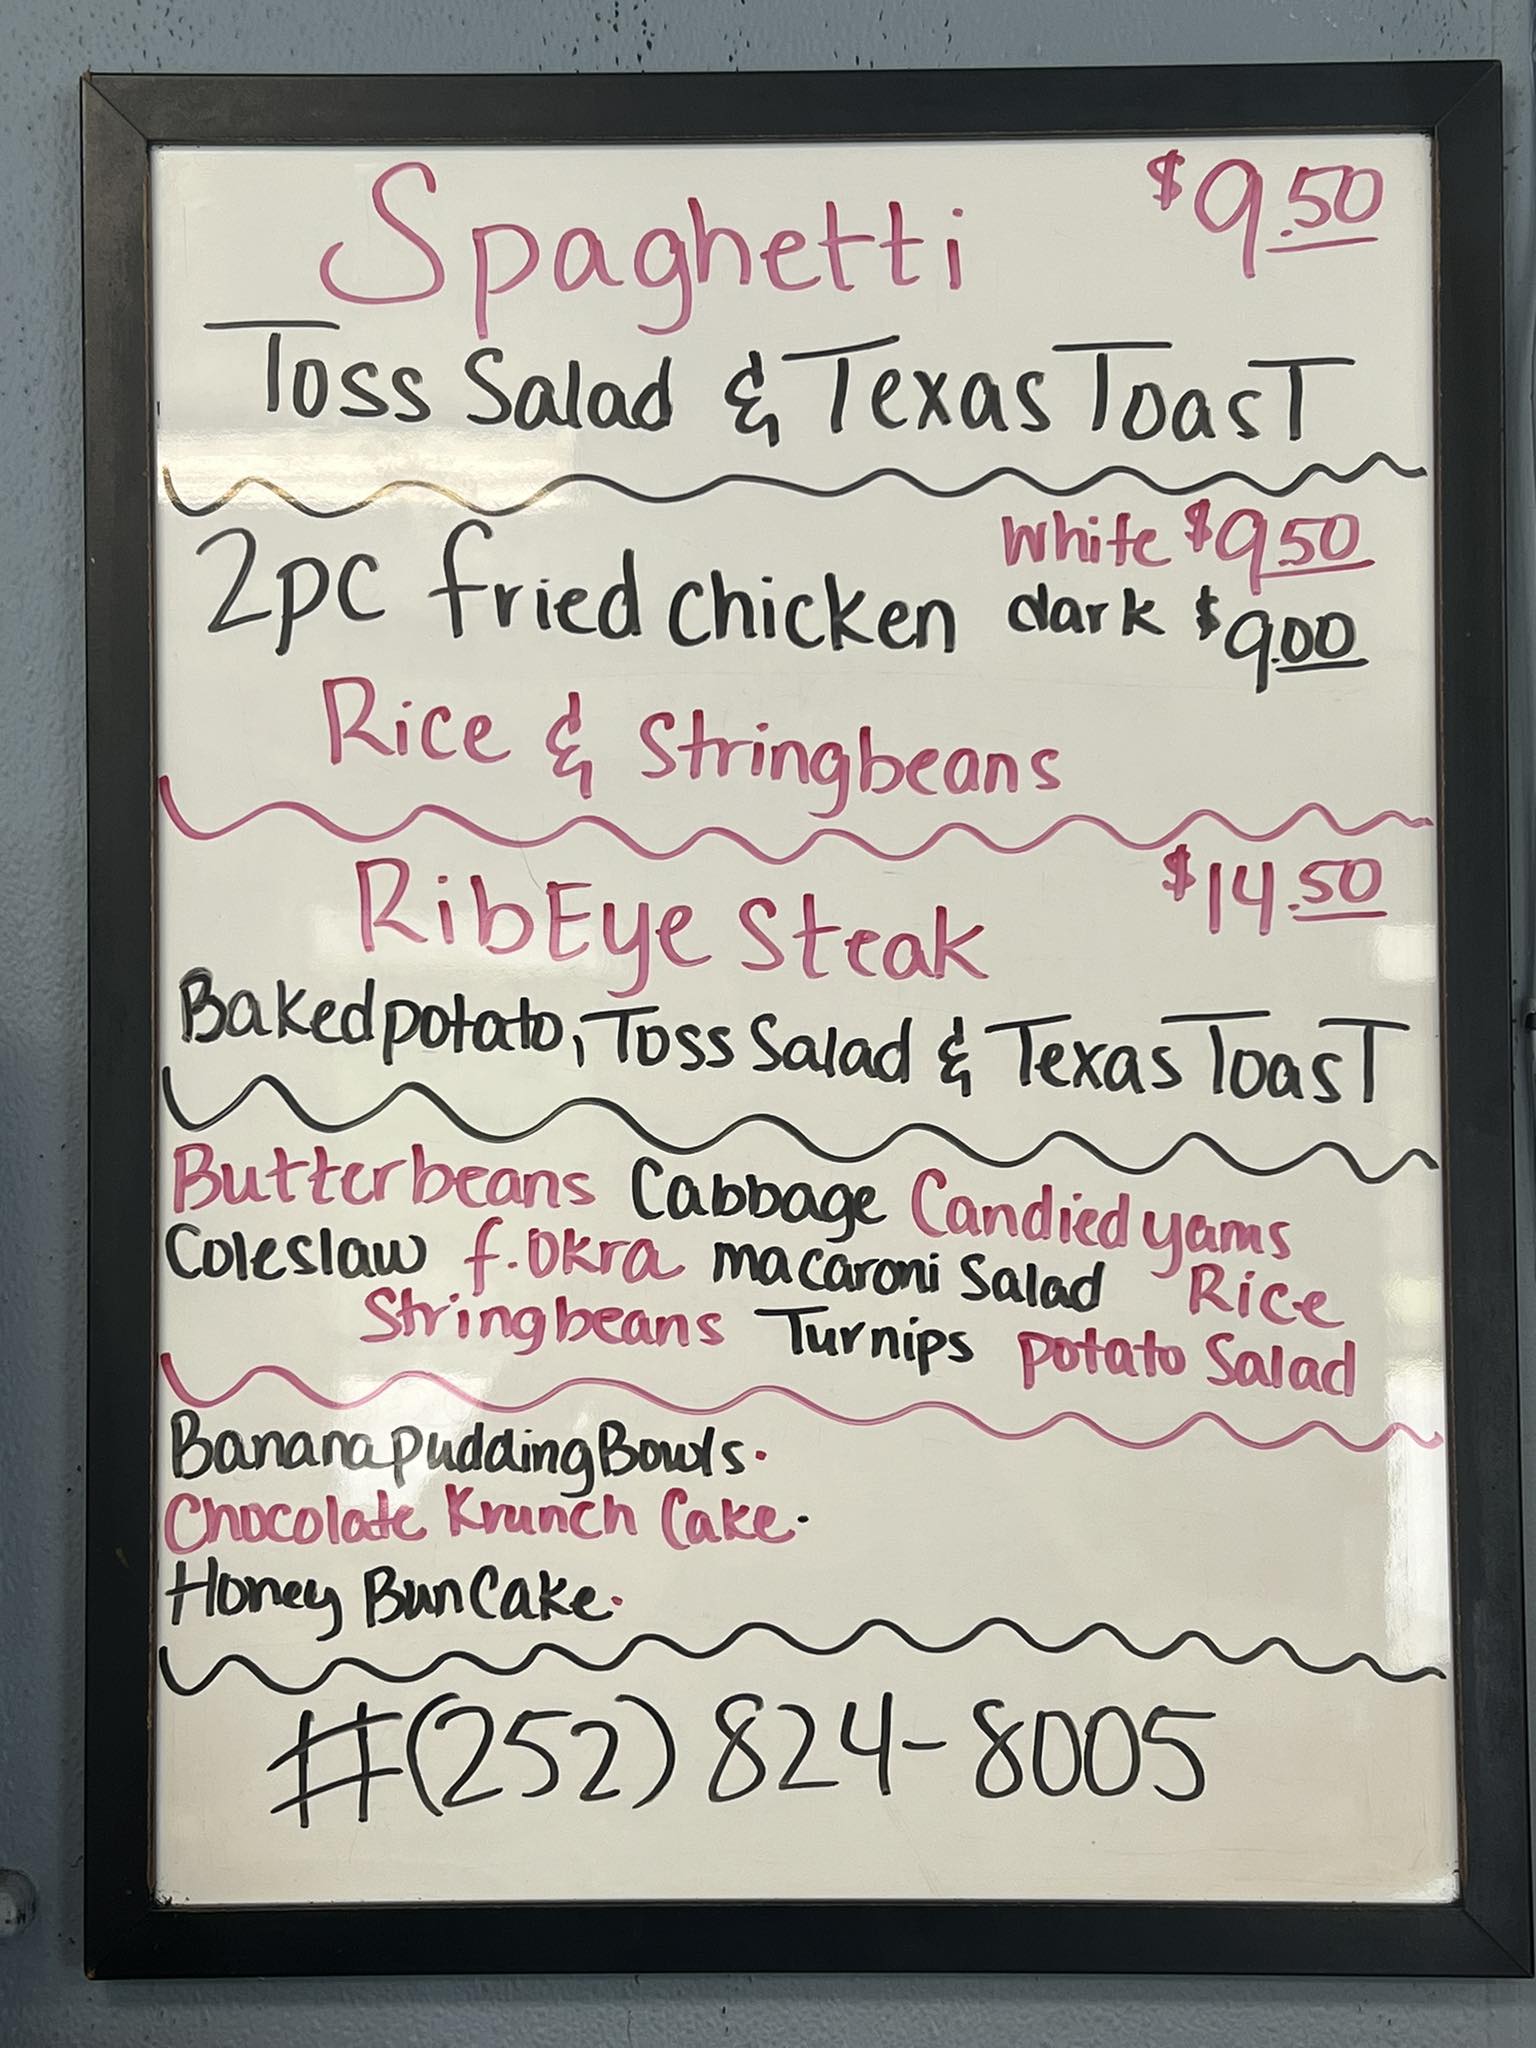 Spaghetti $9.50
Toss Salad & Texas Toast
2pc fried chicken white $9.50
dark $9.00
Rice & Stringbeans
RibEye Steak $14.50
Baked potato, Toss Salad & Texas Toast
Butterbeans Cabbage Candied yams
Coleslaw f. Okra macaroni Salad Rice
Stringbeans Turnips potato Salad
Banana Pudding Bowls.
Chocolate Krunch Cake.
Honey Bun Cake.
#(252) 824-8005